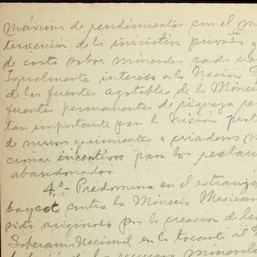 máximo de rendimientos con el m
de la iniciativa privada
de costo sobre minerales cada ve
Igualmente interesa a la Nación
de las fuentes agotables de la Minería
fuentes permanentes de riqueza
tan importante para la Nación
de nuevos yacimientos o criaderos
cionar incentivos para los
abandonados.
4°- Predomina en el extranje
boycot contra la Minería Mexicana
sido originado por la creación de
Soberanía Nacional en lo tocante al
de los recursos minerales